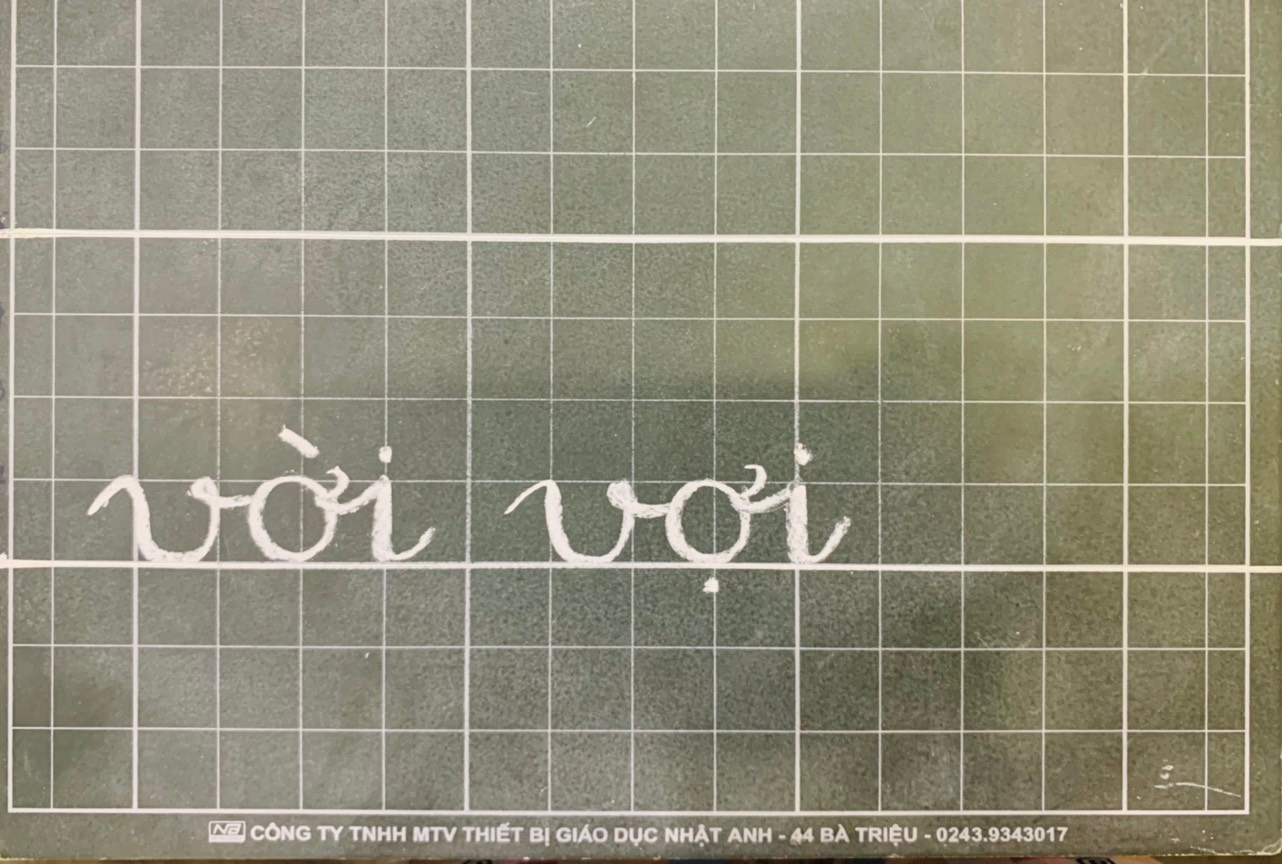 vời vợi
NA CÔNG TY TNHH MTV THIẾT BỊ GIÁO DỤC NHẬT ANH - 44 BÀ TRIỆU - 0243.9343017